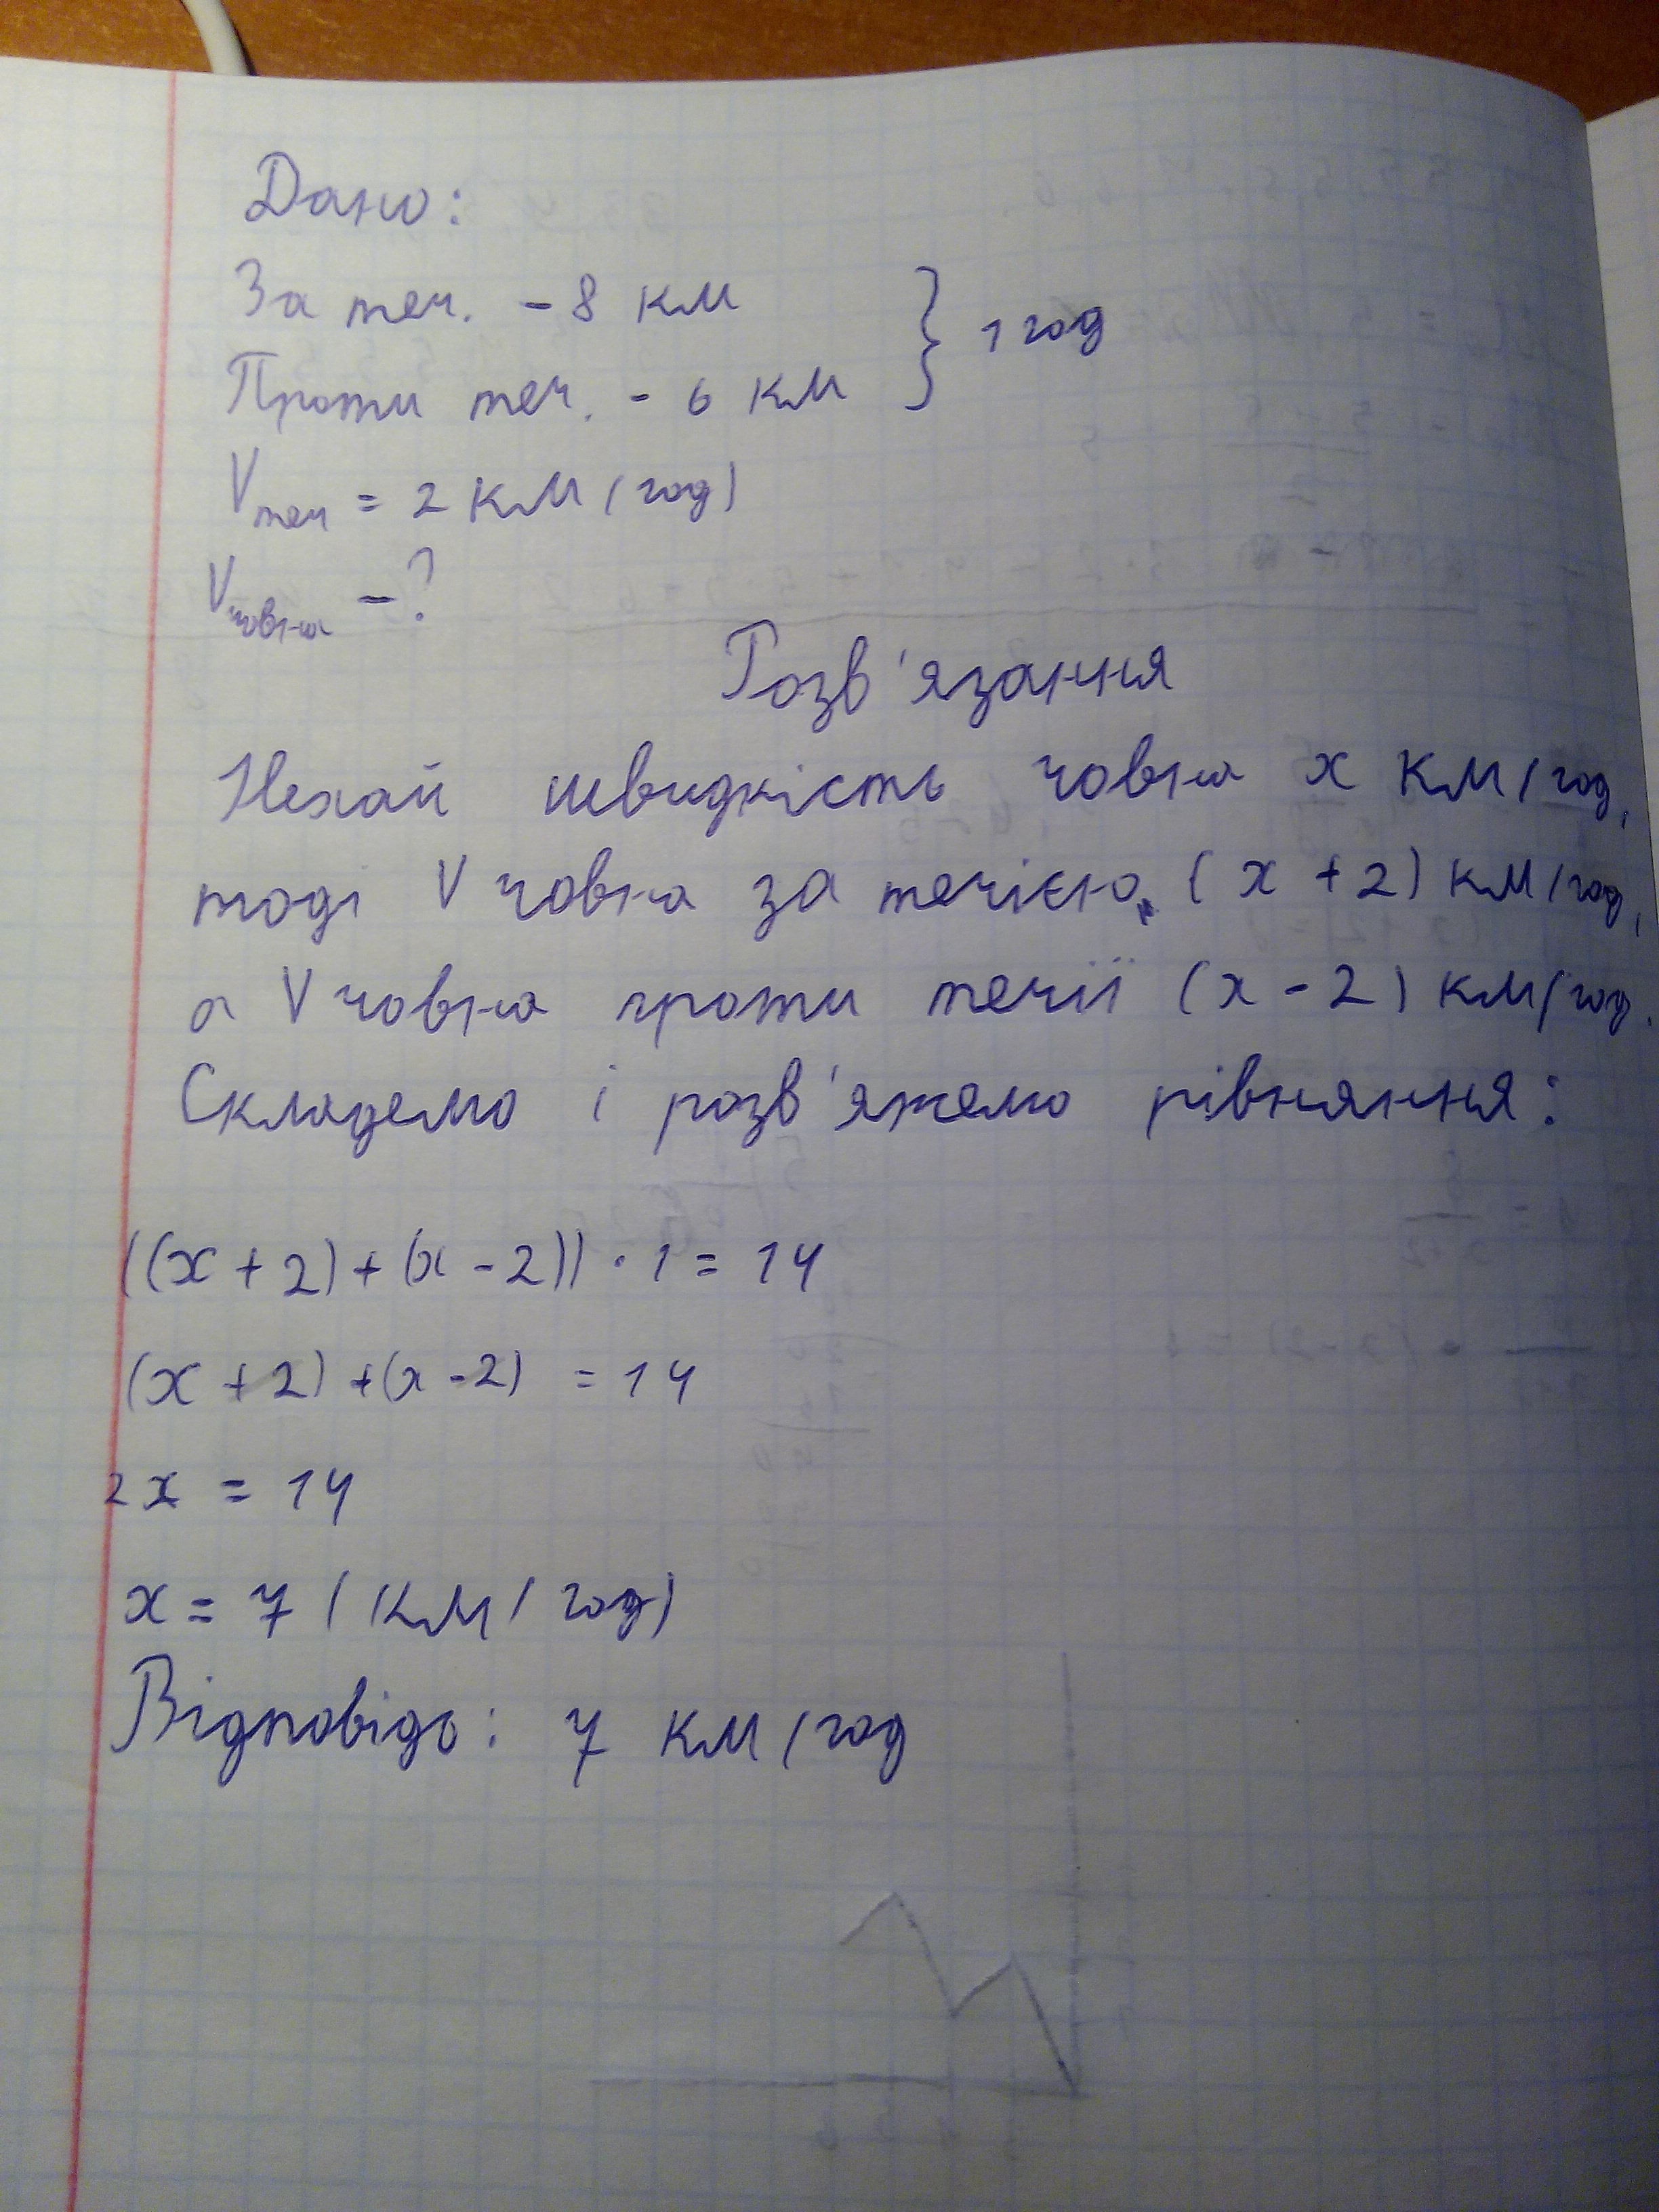 Дано:
За теч. - 8 км
Проти теч. - 6 км } 1 год
Vтеч = 2 км/год)
Vчовна - ?
Розв'язання
Нехай швидкість човна x км/год,
тоді V човна за течією (x + 2) км/год,
а V човна проти течії (x - 2) км/год.
Складемо і розв'яжемо рівняння:
((x + 2) + (x - 2)) · 1 = 14
(x + 2) + (x - 2) = 14
2x = 14
x = 7 (км/год)
Відповідь: 7 км/год